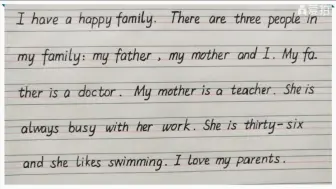 I have a happy family. There are three people in
my family: my father , my mother and I. My fa-
ther is a doctor. My mother is a teacher. She is
always busy with her work. She is thirty-six
and she likes swimming. I love my parents.